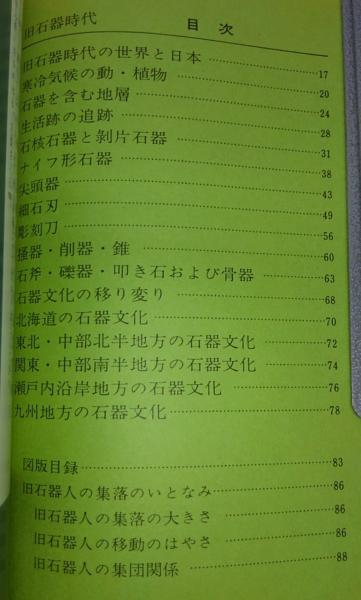 旧石器時代 目次
旧石器時代の世界と日本 ……… 17
寒冷気候の動・植物 ……… 20
石器を含む地層 ……… 24
生活跡の追跡 ……… 28
石核石器と剥片石器 ……… 31
ナイフ形石器 ……… 38
尖頭器 ……… 43
細石刃 ……… 49
彫刻刀 ……… 56
掻器・削器・錐 ……… 60
石斧・礫器・叩き石および骨器 ……… 63
石器文化の移り変り ……… 68
北海道の石器文化 ……… 70
東北・中部北半地方の石器文化 ……… 72
関東・中部南半地方の石器文化 ……… 74
瀬戸内沿岸地方の石器文化 ……… 76
九州地方の石器文化 ……… 78
図版目録 ……… 83
旧石器人の集落のいとなみ ……… 86
旧石器人の集落の大きさ ……… 86
旧石器人の移動のはやさ ……… 86
旧石器人の集団関係 ……… 88